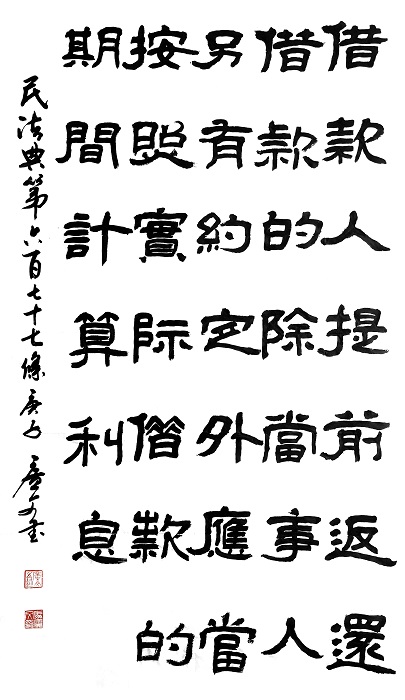 借款人提前返還
借款的除當事人
另有約定外應當
按照實際借款的
期間計算利息
民法典第六百七十七條 庚子 書